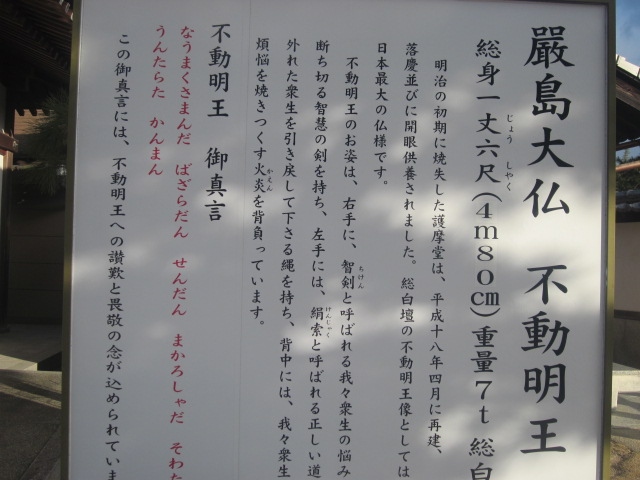 嚴島大仏 不動明王
総身一丈六尺(4m80㎝)重量7t 総白
じょう しゃく
明治の初期に焼失した護摩堂は、平成十八年四月に再建、
落慶並びに開眼供養されました。総白壇の不動明王像としては
日本最大の仏様です。
不動明王のお姿は、右手に、智剣と呼ばれる我々衆生の悩み
ちけん
断ち切る智慧の剣を持ち、左手には、絹索と呼ばれる正しい道
けんじゃく
外れた衆生を引き戻して下さる縄を持ち、背中には、我々衆生
煩悩を焼きつくす火炎を背負っています。
かえん
不動明王 御真言
なうまくさまんだ ばざらだん せんだん まかろしゃだ そわた
うんたらた かんまん
この御真言には、不動明王への讃歎と畏敬の念が込められていま